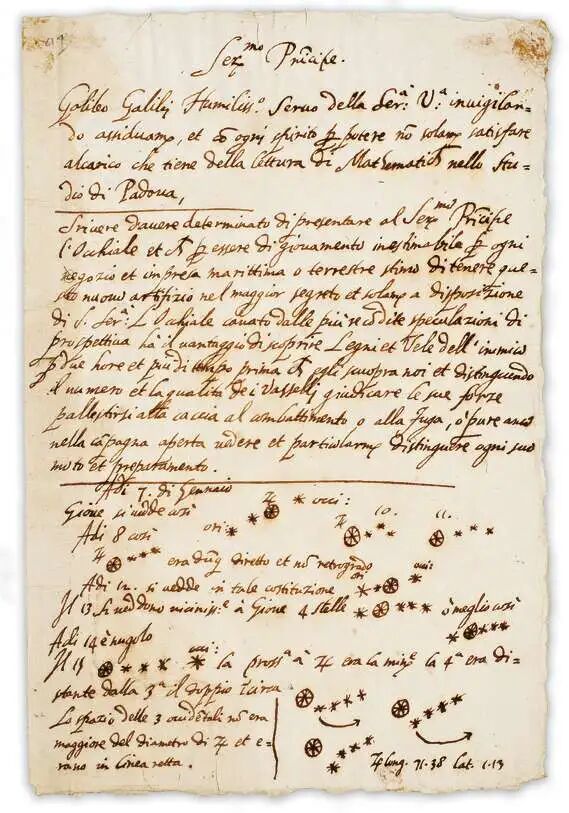 Ser.mo Principe.
Galileo Galilei Humiliss.o Servo della Ser.a V.a invigilan-
do assiduam.te, et cõ ogni spirito p potere nõ solam.te satisfare
al carico che tiene della lettura di Mathematiche nello Stu-
dio di Padova,
Scrivere d'avere determinato di presentare al Ser.mo Principe
l'Occhiale et p essere di giovamento inestimabile p ogni
negozio et impresa marittima o terrestre stimo di tenere que-
sto nuovo artifizio nel maggior segreto et solam.te a disposizione
di S. Ser.a L'Occhiale cavato dalle più recõdite speculazioni di
prospettiva ha il vantaggio di scoprire Legni et Vele dell'inimico
p due hore et più di tempo prima egli scuopra noi et distinguendo
il numero et la qualità de i Vasselli giudicare le sue forze
pallestirsi alla caccia al combattimento o alla fuga, o pure anco
nella cãpagna aperta vedere et particolarm.te distinguere ogni suo
moto et preparamento.
Adi 7. di Gennaio
Giove si vedde così ♃ occi:
Adi 8 così ori: ♃ 10. 11.
♃ era dũq diretto et nõ retrogrado
Adi 12. si vedde in tale costituzione ori occi:
Il 13 si veddono vicinis.e à Giove 4 stelle ò meglio così
Adi 14 è nugolo
Il 15 occi: la pross.a à ♃ era la min.e la 4.a era di-
stante dalla 3.a il doppio circa
Lo spazio delle 3 occidẽtali nõ era
maggiore del diametro di ♃ et e-
rano in linea retta.
♃ long. 71.38 lat. 1.13